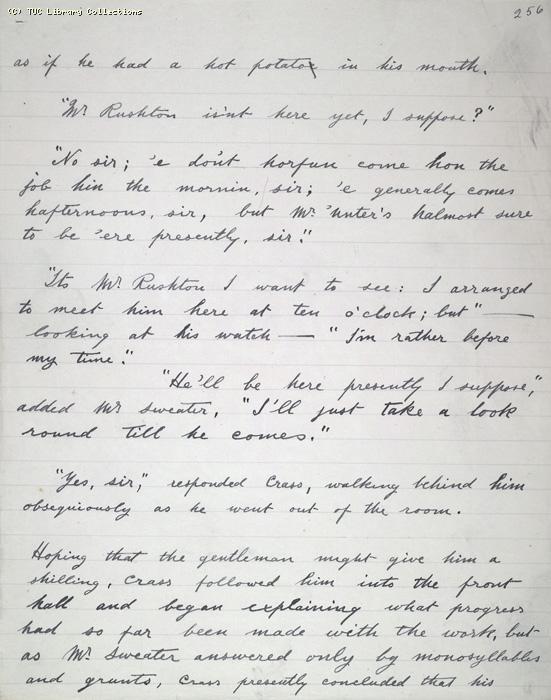 (C) TUC Library Collections
256
as if he had a hot potatoe in his mouth.
"Mr Rushton isn't here yet, I suppose?"
"No sir; 'e don't horfun come hon the
job hin the mornin, sir; 'e generally comes
hafternoons, sir, but Mr 'Unter's halmost sure
to be 'ere presently, sir."
"Its Mr Rushton I want to see: I arranged
to meet him here at ten o'clock; but" —
looking at his watch — "I'm rather before
my time."
"He'll be here presently I suppose,"
added Mr Sweater, "I'll just take a look
round till he comes."
"Yes, sir," responded Crass, walking behind him
obsequiously as he went out of the room.
Hoping that the gentleman might give him a
shilling, Crass followed him into the front
hall and began explaining what progress
had so far been made with the work, but
as Mr Sweater answered only by monosyllables
and grunts, Crass presently concluded that his